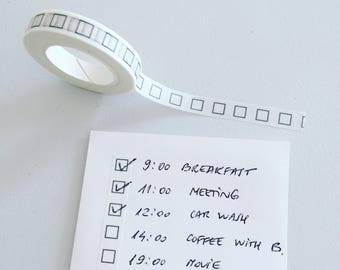 9:00 BREAKFAST
11:00 MEETING
12:00 CAR WASH
14:00 COFFEE WITH B.
19:00 MOVIE